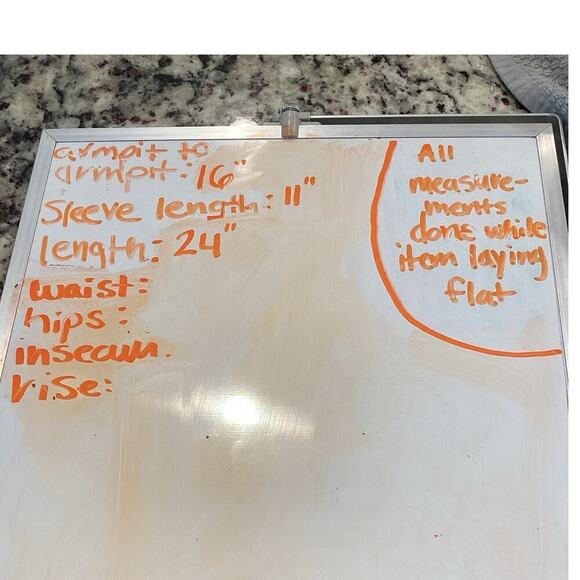 armpit to
armpit: 16"
Sleeve length: 11"
length: 24"
waist:
hips:
inseam.
rise:
All
measure-
ments
done while
item laying
flat